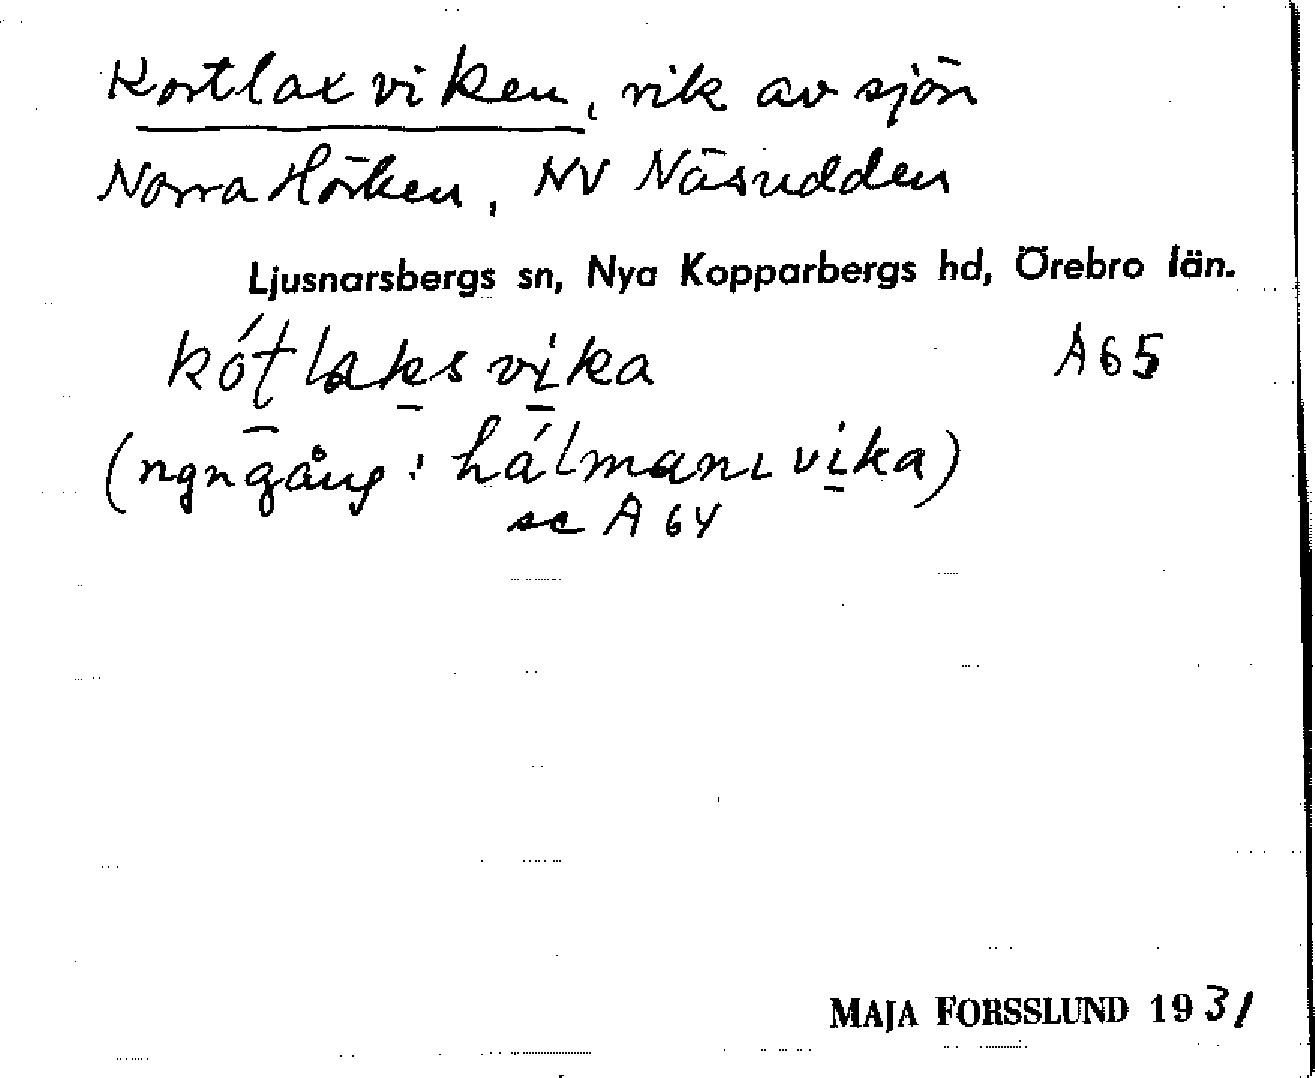 Kortlaxviken, vik av sjön
Norra Hörken, NV Näsudden
Ljusnarsbergs sn, Nya Kopparbergs hd, Örebro län.
kótlaks vika A65
(ngn gång: hálmanıvika)
se A 64
MAJA FORSSLUND 1931